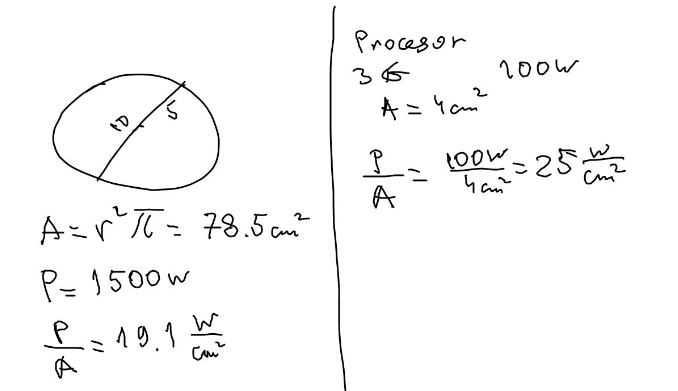 10 5
A = r² π = 78.5 cm²
P = 1500 W
P/A = 19.1 W/cm²
Procesor
100W
A = 4 cm²
P/A = 100W/4cm² = 25 W/cm²